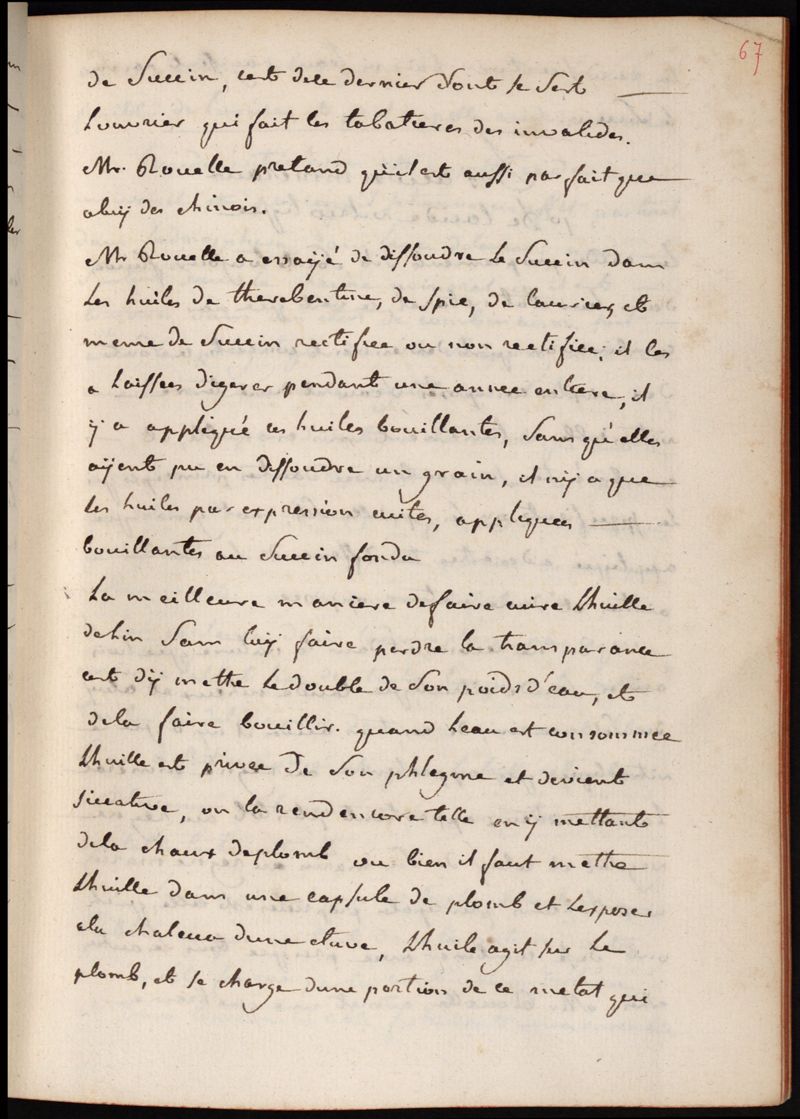 67
de Succin, cest dece dernier dont se sert
Louvrier qui fait les tabatieres des invalides.
Mr. Rouelle pretand quil est aussi parfait que
celuy des chinois.
Mr Rouelle a essayé de dissoudre Le Succin dans
Les huiles de therebentine, de Spic, de laurier, et
meme de Succin rectifiee ou non rectifiee; il les
a Laissees digerer pendant une annee entiere, il
y a appliqué ces huiles bouillantes, Sans qu'elles
ayent pu en dissoudre un grain, il ny a que
les huiles par expression cuites, appliquees
bouillantes au Succin fondu
La meilleure maniere defaire cuire Lhuille
delin Sans luy faire perdre la transparance
cest dy mettre Le double de Son poids d'eau, et
dela faire bouillir. quand Leau est consommee
Lhuille est privee de Son phlegme et devient
siccative, on la rend encore telle en y mettant
dela chaux deplomb ou bien il faut mettre
Lhuille dans une capsule de plomb et Lexposer
ala chaleur dune etuve, Lhuile agit sur Le
plomb, et se charge dune portion de ce metal qui